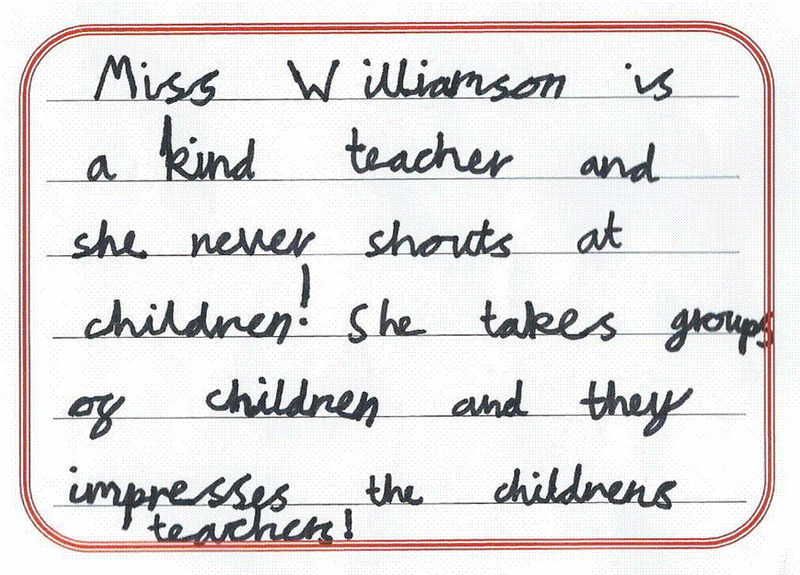 Miss Williamson is
a kind teacher and
she never shouts at
children! She takes groups
of children and they
impresses the childrens
teachers!